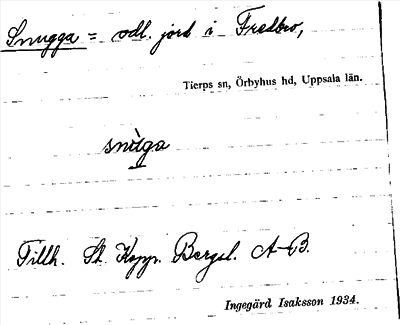 Snugga = odl. jord i Fredbro,
Tierps sn, Örbyhus hd, Uppsala län.
snùga
Tillh. St. Kopp. Bergsl. A-B.
Ingegärd Isaksson 1934.